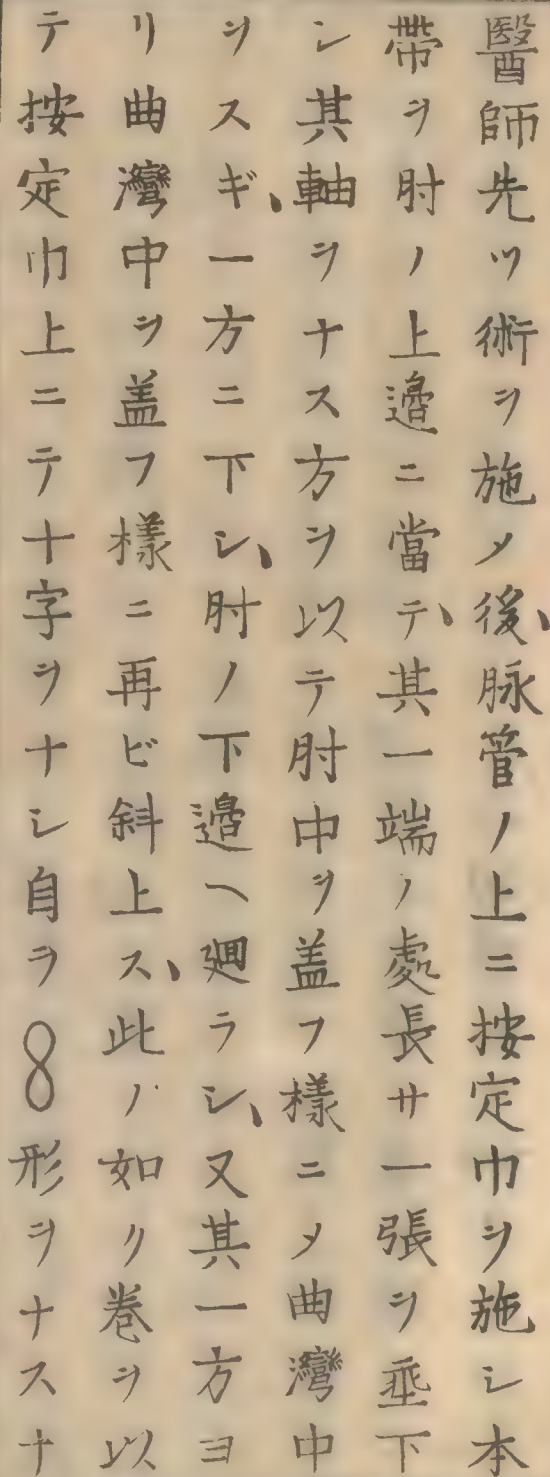 醫師先ツ術ヲ施メ後、脉管ノ上ニ按定巾ヲ施シ本
帶ヲ肘ノ上邉ニ當テ、其一端ノ處長サ一張ヲ埀下
シ其軸ヲナス方ヲ以テ肘中ヲ盖フ樣ニメ曲灣中
ヲスギ、一方ニ下シ、肘ノ下邉ヘ廻ラシ、又其一方ヨ
リ曲灣中ヲ盖フ樣ニ再ビ斜上ス、此ノ如リ巻ヲ以
テ按定巾上ニテ十字ヲナシ自ラ8形ヲナスナ